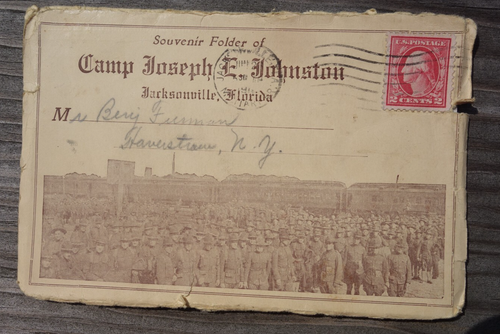 Souvenir Folder of
Camp Joseph E. Johnston
Jacksonville, Florida
Mr Benj
Haverstraw, N.Y.
U.S. POSTAGE
2 CENTS 2